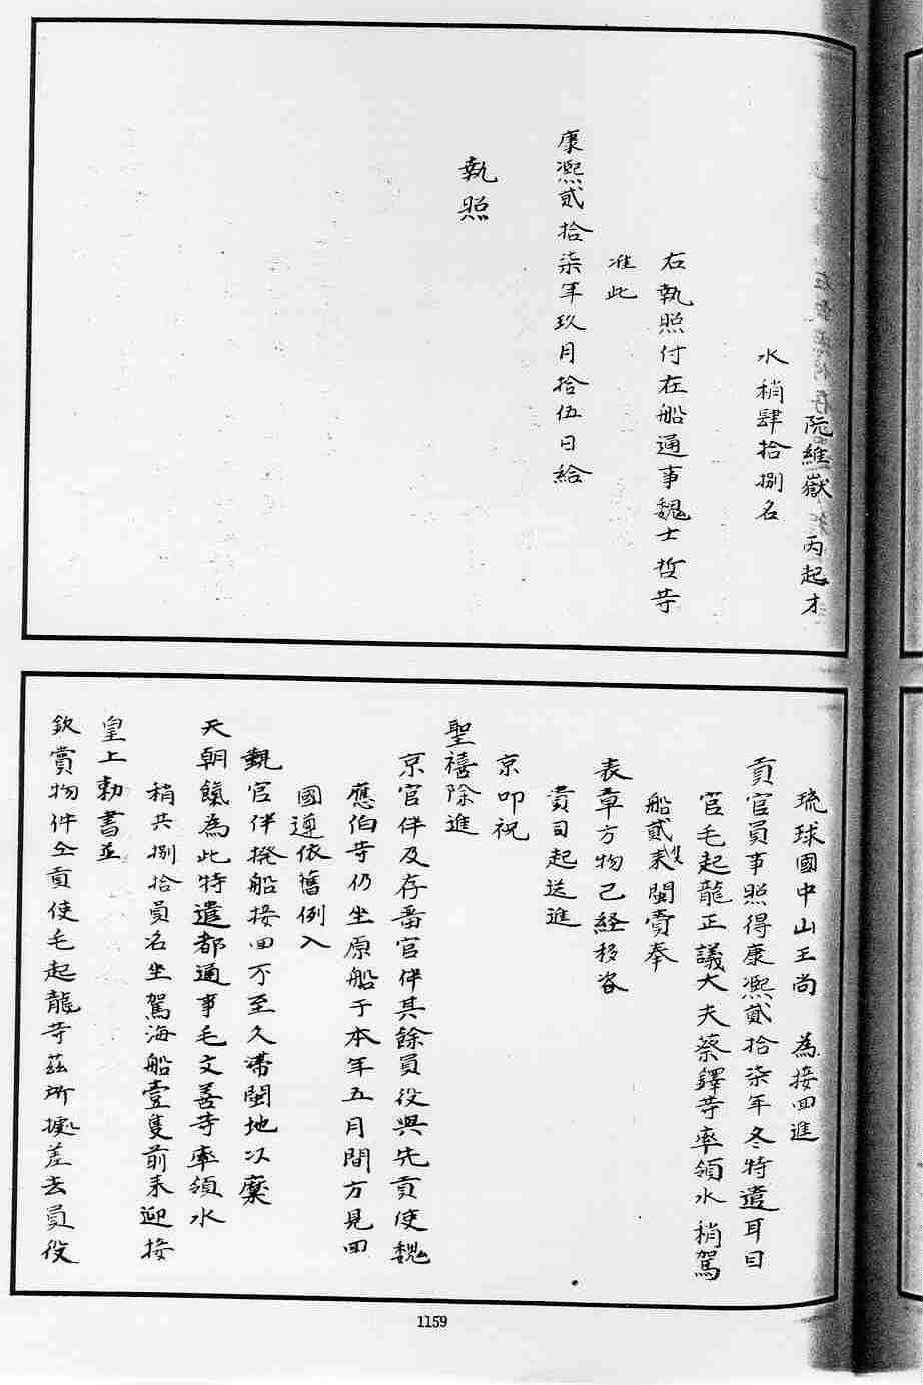 阮維嶽 丙起才
水梢肆拾捌名
右執照付在船通事魏士哲等
准此
康熙貳拾柒年玖月拾伍日給
執照
琉球國中山王尚 為接回進
貢官員事照得康熙貳拾柒年冬特遣耳目
官毛起龍正議大夫蔡鐸等率領水梢駕
船貳隻來閩賫奉
表章方物已經移咨
貴司起送進
京叩祝
聖禧除進
京官伴及存畱官伴其餘員役與先貢使魏
應伯等仍坐原船于本年五月間方見回
國遵依舊例入
覲官伴撥船接回不至久滯閩地以糜
天朝餼為此特遣都通事毛文善等率領水
梢共捌拾員名坐駕海船壹隻前來迎接
皇上勅書並
欽賞物件仝貢使毛起龍等茲所據差去員役
1159